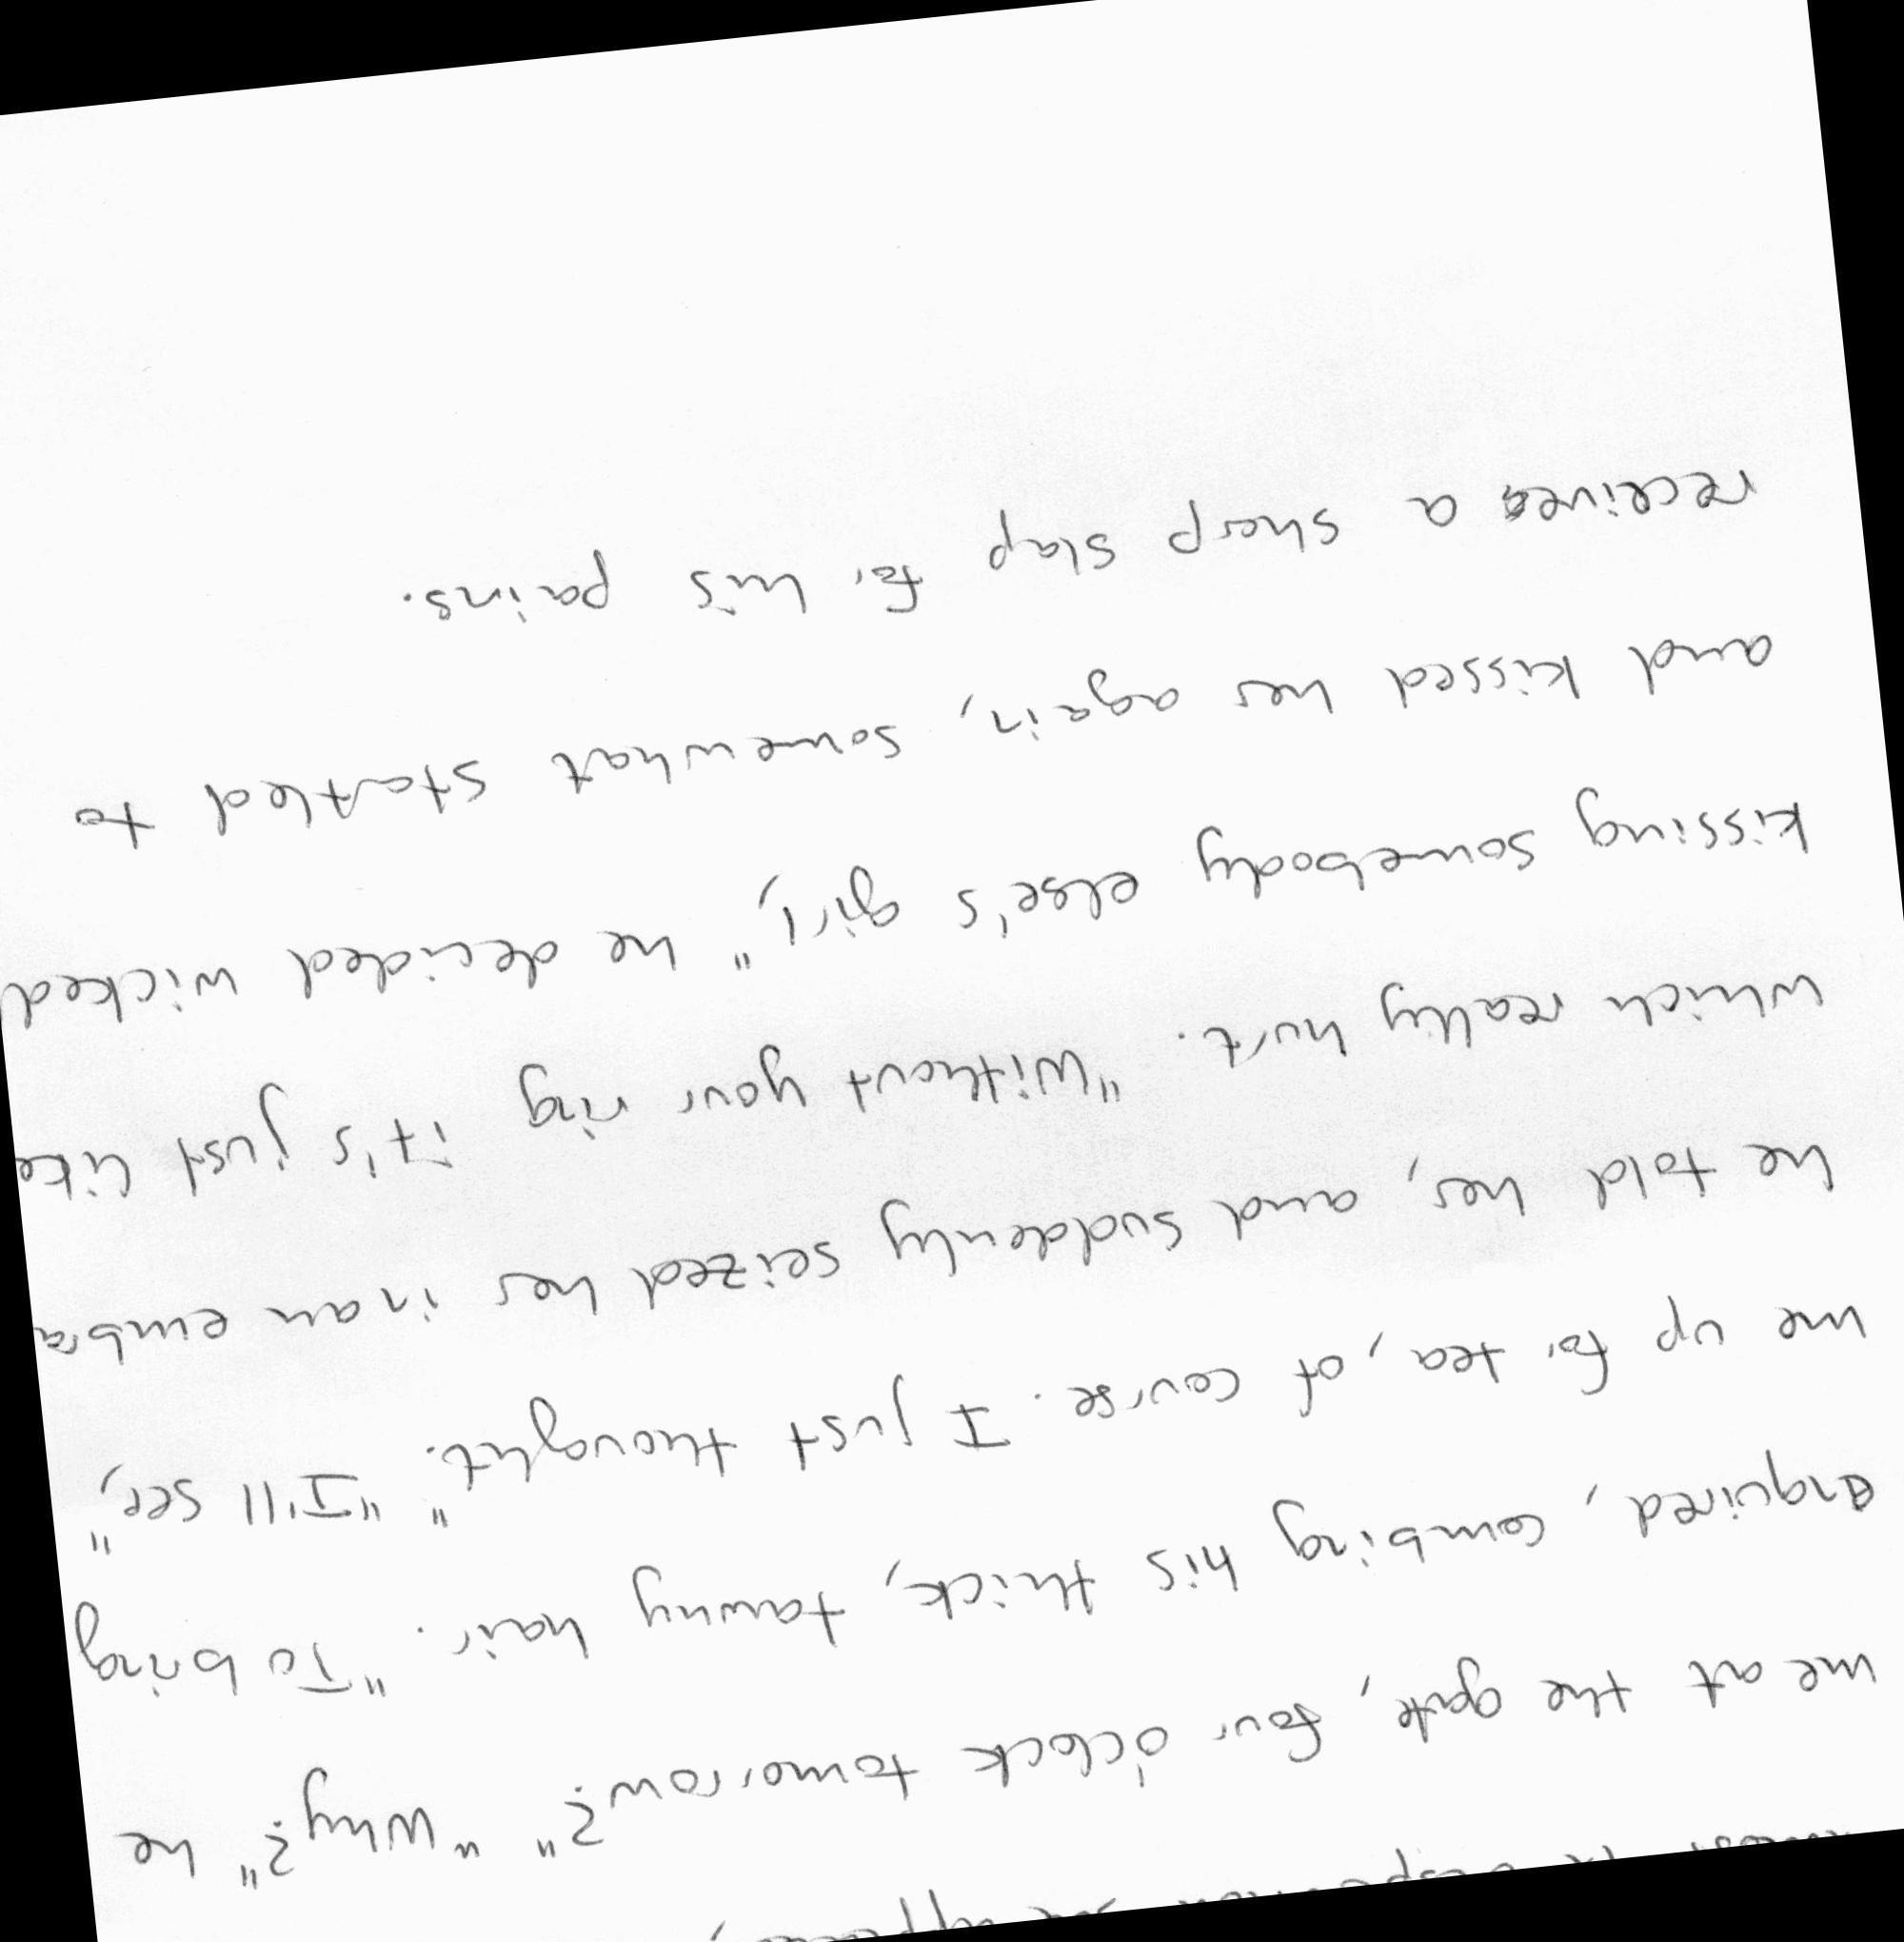 me at the gate, four o'clock tomorrow?" "Why?" he
enquired, combing his thick, tawny hair. "To bring
me up for tea, of course. I just thought." "I'll see,"
he told her, and suddenly seized her in an
which really hurt. "Without your ring it's just like
kissing somebody else's girl," he decided
and kissed her again, somewhat startled to
receive a sharp slap for his pains.